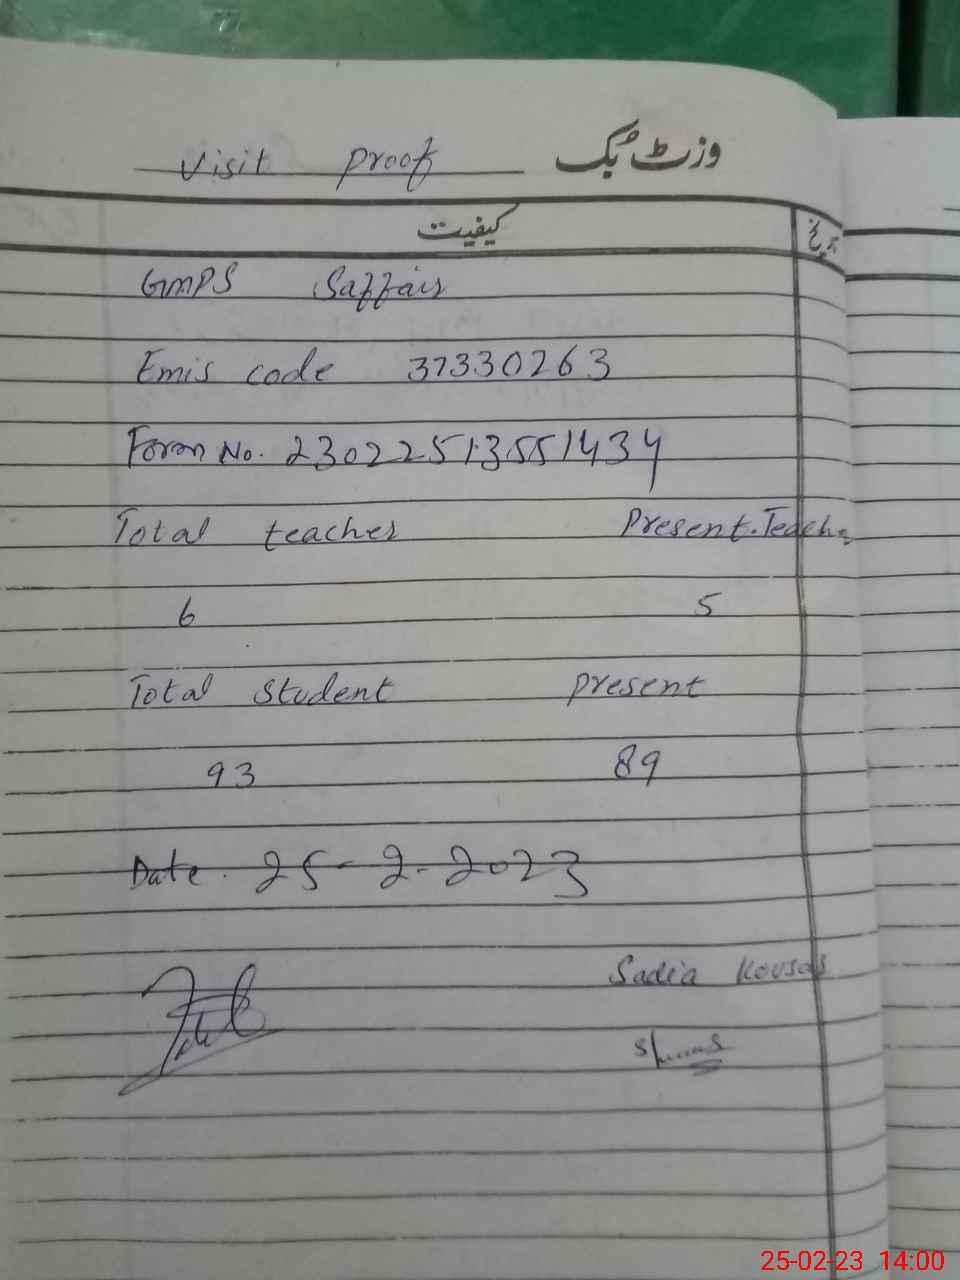 Visit Proof وزٹ بک
کیفیت تاریخ
GMPS Saffair
Emis code 37330263
Form No. 230225135551434
Total teacher Present. Teache
6 5
Total Student Present
93 89
Date. 25-2-2023
Sadia Kousar
25-02-23 14:00